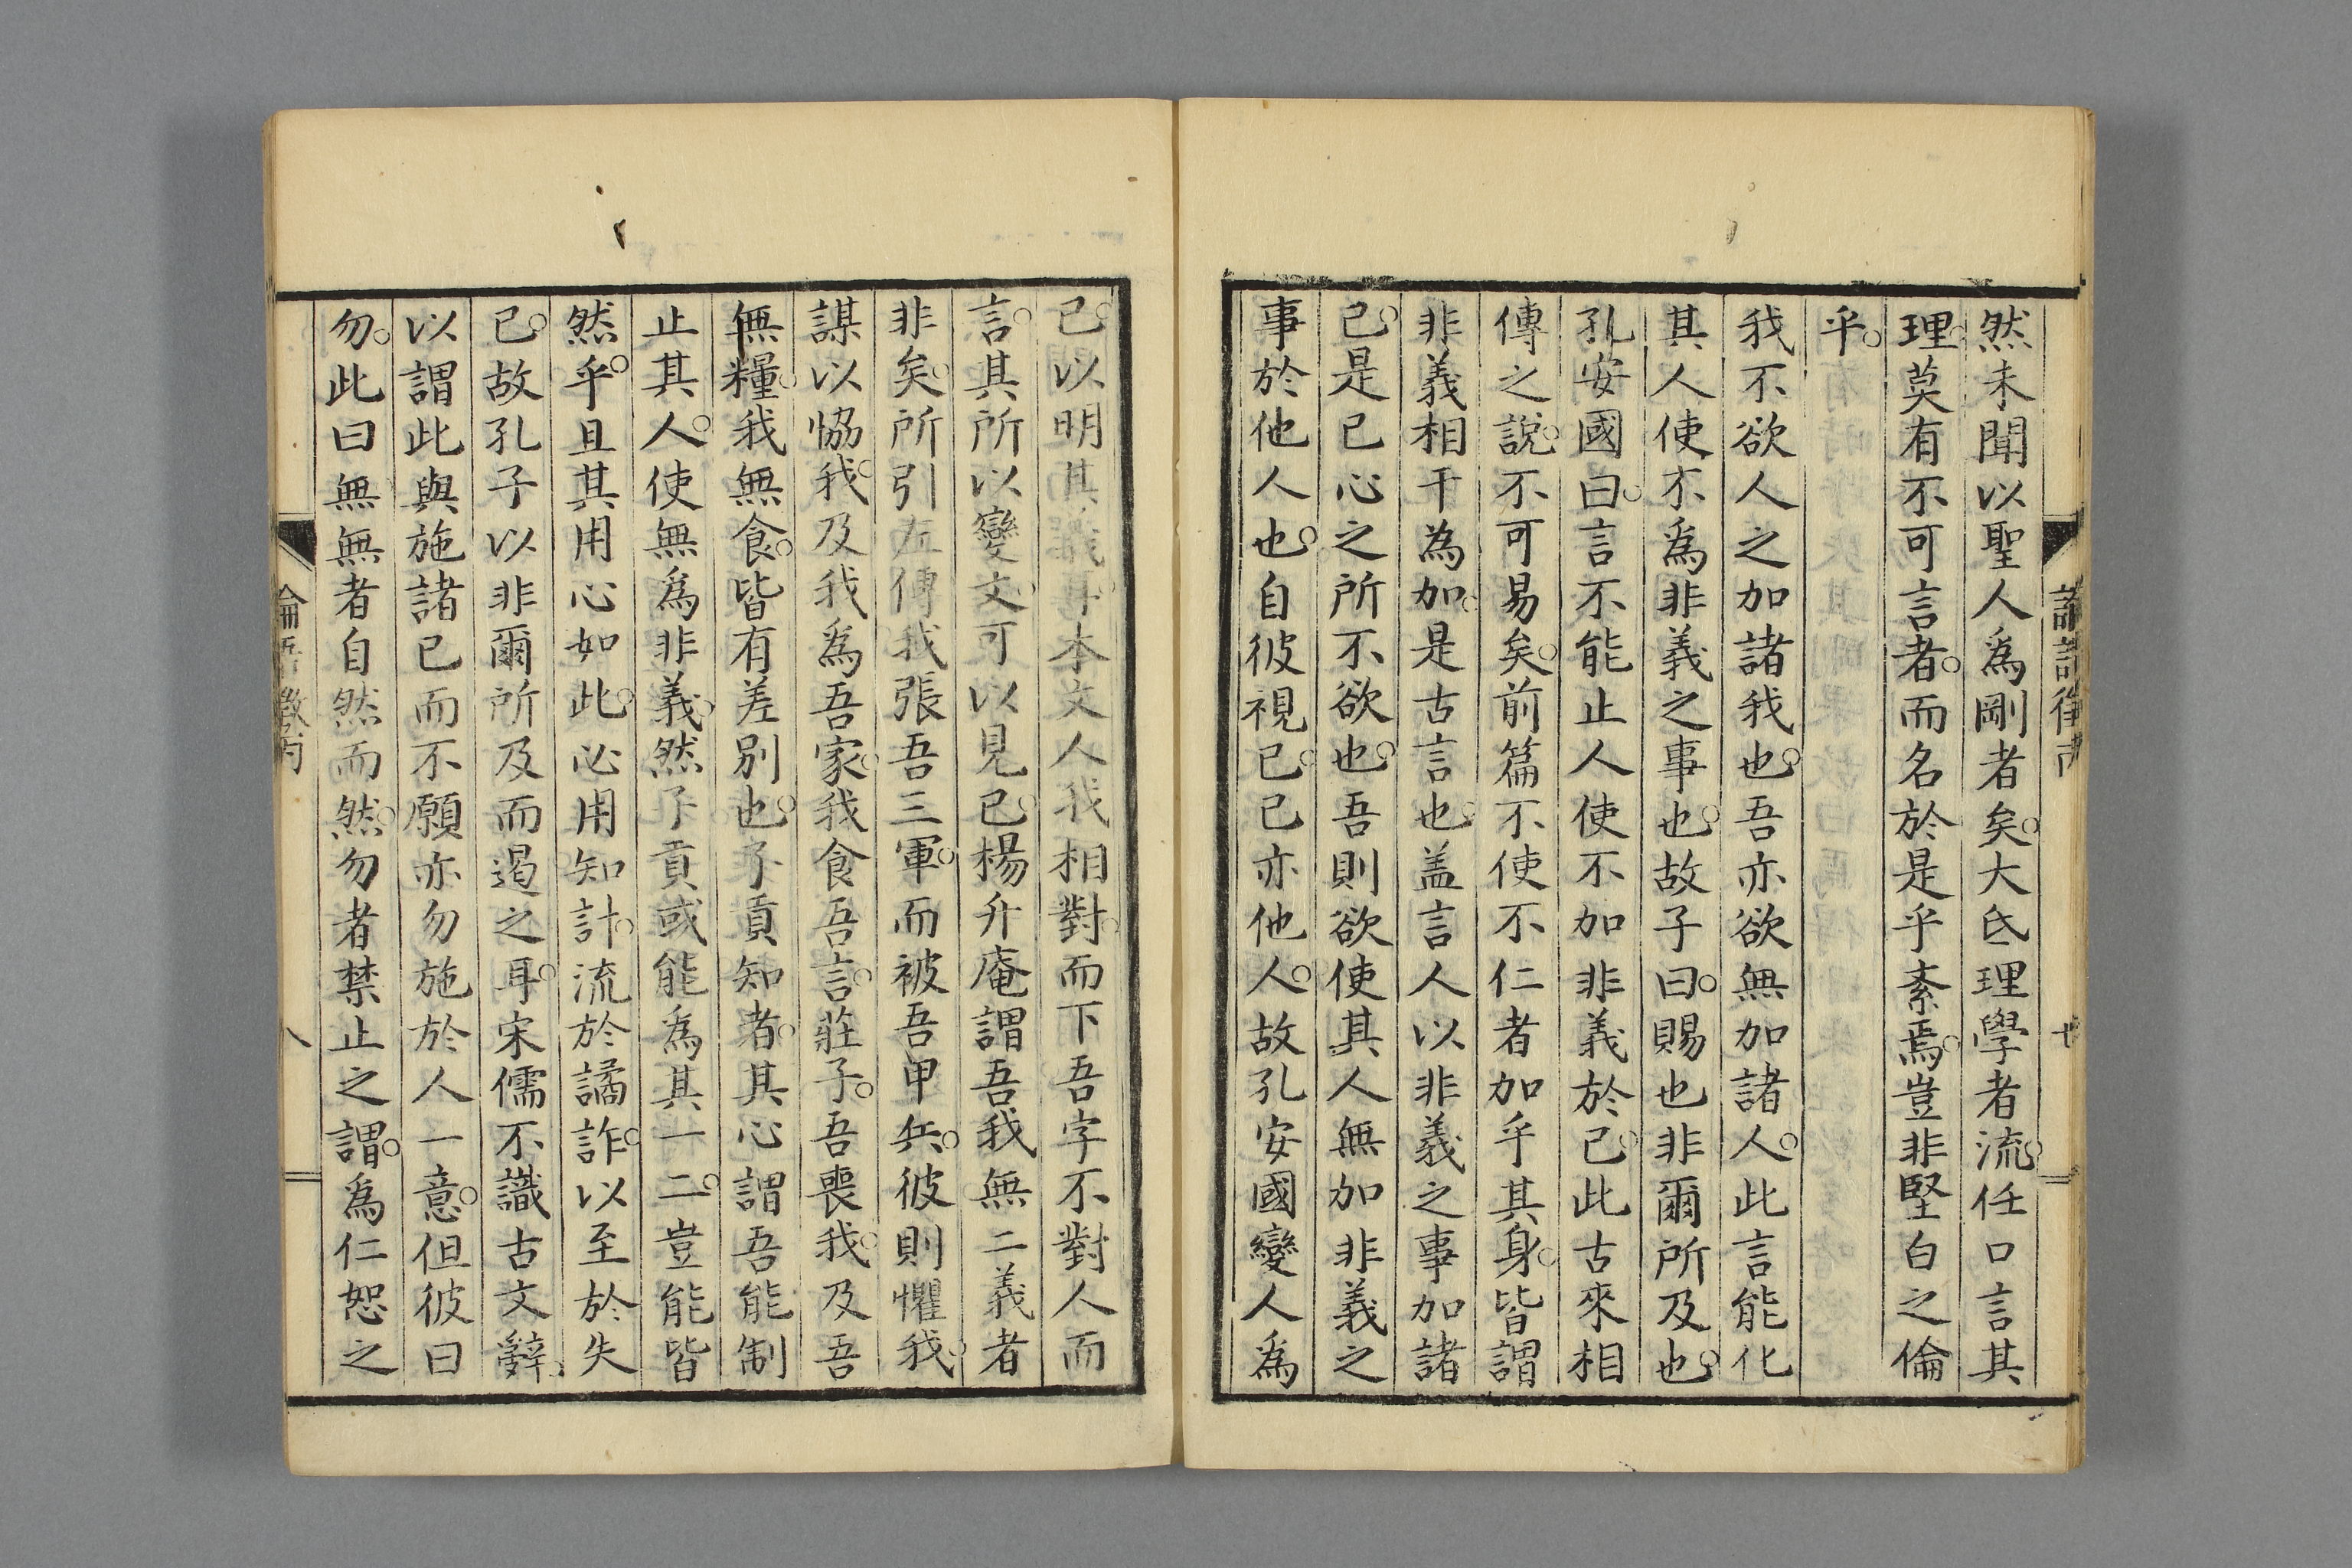 然未聞以聖人為剛者矣。大氐理學者流。任口言其
理。莫有不可言者。而名於是乎紊焉。豈非堅白之倫
乎。
我不欲人之加諸我也。吾亦欲無加諸人。此言能化
其人使不為非義之事也。故子曰。賜也非爾所及也。
孔安國曰。言不能止人使不加非義於己。此古來相
傳之說。不可易矣。前篇不使不仁者加乎其身。皆謂
非義相干為加。是古言也。盖言人以非義之事加諸
己。是己心之所不欲也。吾則欲使其人無加非義之
事於他人也。自彼視己。己亦他人。故孔安國變人為
己。以明其義。本文人我相對。而下吾字不對人而
言。其所以變文。可以見已。楊升庵謂吾我無二義者
非矣。所引左傳我張吾三軍。而被吾甲兵。彼則懼我。
謀以恊我。及我為吾家。我食吾言。莊子。吾喪我。及吾
無糧。我無食。皆有差別也。子貢知者。其心謂吾能制
止其人。使無為非義。然子貢或能為其一二。豈能皆
然乎。且其用心如此。必用知計。流於譎詐。以至於失
己。故孔子以非爾所及而遏之耳。宋儒不識古文辭。
以謂此與施諸己而不願亦勿施於人一意。但彼曰
勿。此曰無。無者自然而然。勿者禁止之謂。為仁恕之
論語徵丙
八